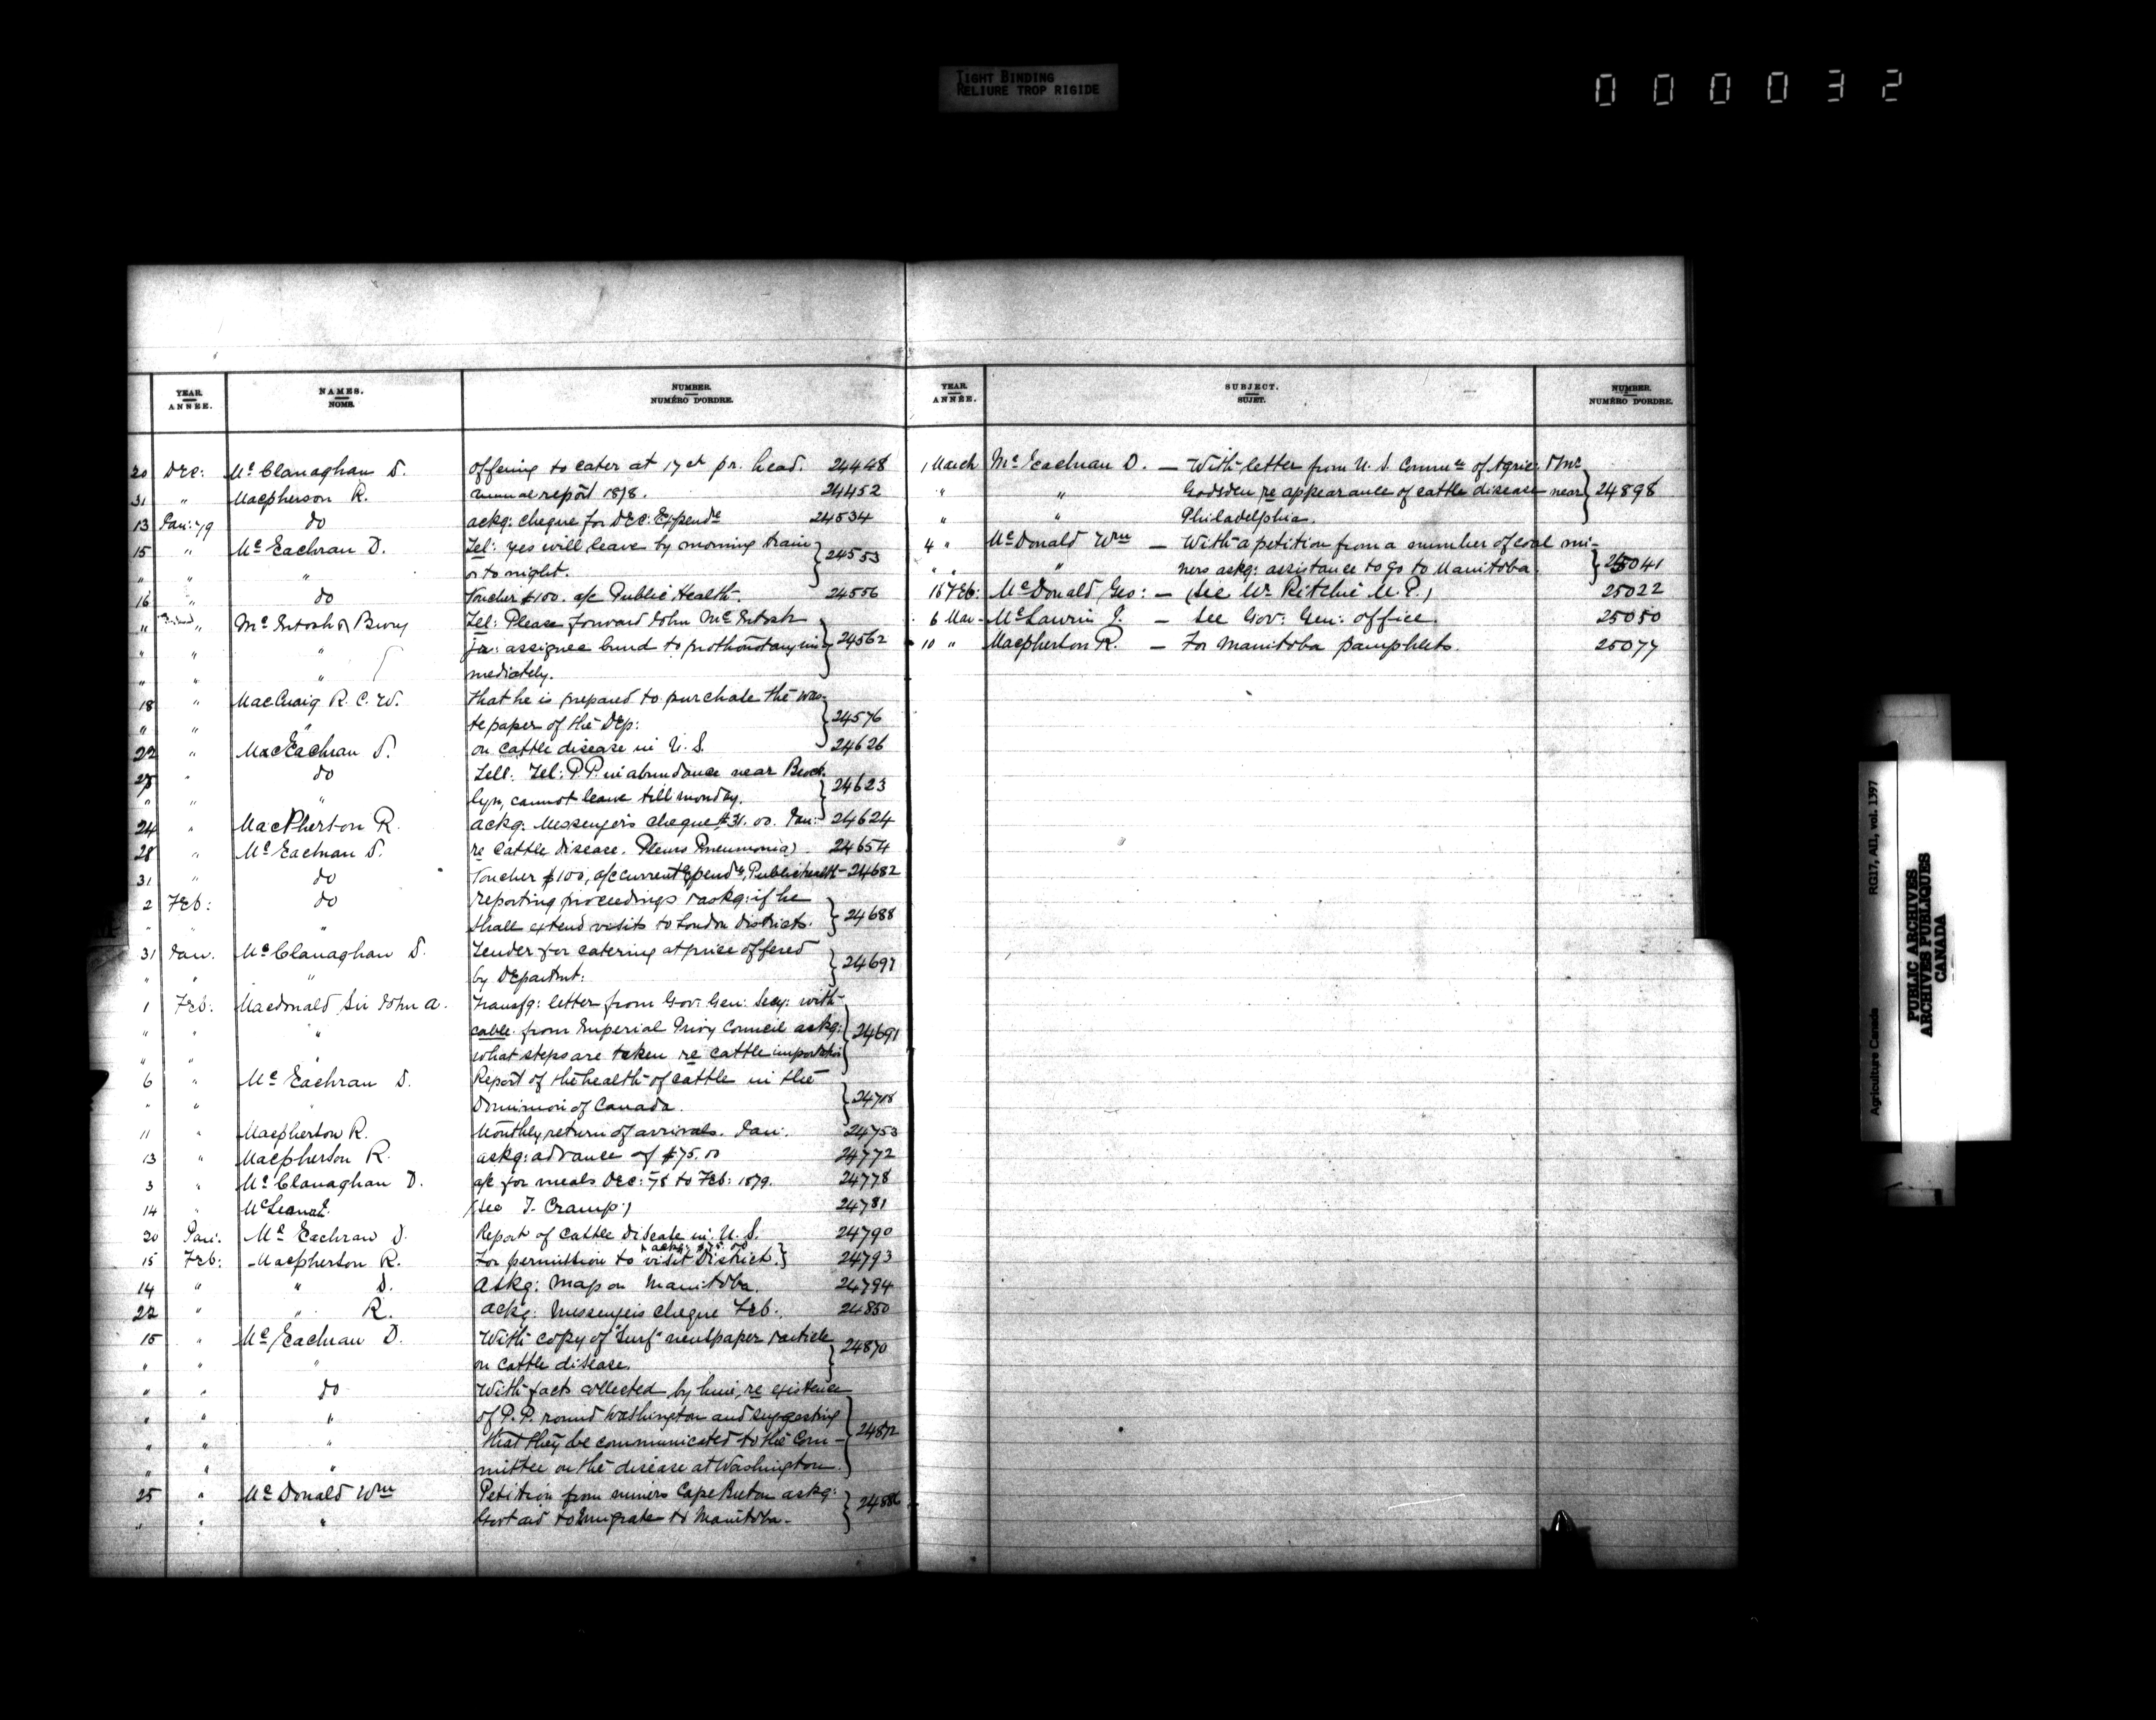 TIGHT BINDING
RELIURE TROP RIGIDE
000032
YEAR. ANNÉE. NAMES. NOMS. NUMBER. NUMÉRO D'ORDRE.
20 Dec: Mc Clanaghan D. offering to cater at 17 ct pr. head. 24448
31 " Macpherson R. annual report 1878. 24452
13 Jan: 79 do ackg: cheque for Dec: Expende 24534
15 " Mc Eachran D. Tel: yes will leave by morning train
" " " or to night. 24553
16 " do Voucher $100. a/c Public Health. 24556
" " Mc Intosh & Tel: Please forward John McIntosh
" " " jr: assignee bond to prothonotary im
" " " mediately. 24562
18 " MacCuaig R. C. W. That he is prepared to purchase the was-
" " " te paper of the Dep: 24576
22 " MacEachran D. on cattle disease in U. S. 24626
25 " do Tel: P.P. in abundance near Brook
" " " lyn, cannot leave till monday. 24623
24 " MacPherson R. ackg: Messengers cheque $31.00. Jan: 24624
28 " Mc Eachran D. re Cattle disease. Pleuro Pneumonia) 24654
31 " do Voucher $100, a/c current Expende, Public health 24682
2 Feb: do reporting proceedings & askg: if he
" " " shall extend visits to London districts. 24688
31 Jan. Mc Clanaghan D. Tender for catering at price offered
" " " by Departmt: 24697
1 Feb: Macdonald Sir John A. Transfg: letter from Gov: Gen: Secy: with
" " " cable from Imperial Privy Council askg:
" " " what steps are taken re cattle importation 24691
6 " Mc Eachran D. Report of the health of cattle in the
" " " Dominion of Canada. 24718
11 " Macpherson R. Monthly return of arrivals. Jan: 24753
13 " Macpherson R. askg: advance of $75.00 24772
3 " Mc Clanaghan D. a/c for meals Dec: 78 to Feb: 1879. 24778
14 " (see T. Cramp) 24781
20 Jan: Mc Eachran D. Report of Cattle Disease in U. S. 24790
15 Feb: Macpherson R. For permission to visit District. 24793
14 " " D. Askg: map on Manitoba. 24794
22 " " R. ackg: Messengers cheque Feb: 24850
15 " Mc Eachran D. With copy of "Turf" newspaper & article
" " " on cattle disease. 24870
" " do With facts collected by him, re existence
" " " of P.P. round Washington and suggesting
" " " that they be communicated to the Com-
" " " mittee on the disease at Washington. 24872
25 " Mc Donald Wm Petition from miners Cape Breton askg:
" " " Govt aid to emigrate to Manitoba. 24886
YEAR. ANNÉE. SUBJECT. SUJET. NUMBER. NUMÉRO D'ORDRE.
1 March Mc Eachran D. — With letter from U. S. Commre of Agric: & Mr
" " Gadsden re appearance of cattle disease near 24898
" " Philadelphia.
4 " Mc Donald Wm — With a petition from a number of coal mi-
" " " ners askg: assistance to go to Manitoba. 25041
15 Feb: Mc Donald Geo: — (see Wm Ritchie M.P.) 25022
6 Mar - Mc Lawrin J. — See Gov: Gen: office. 25050
10 " Macpherson R. — For Manitoba pamphlets. 25077
Agriculture Canada RG17, AII, vol. 1397
PUBLIC ARCHIVES
ARCHIVES PUBLIQUES
CANADA